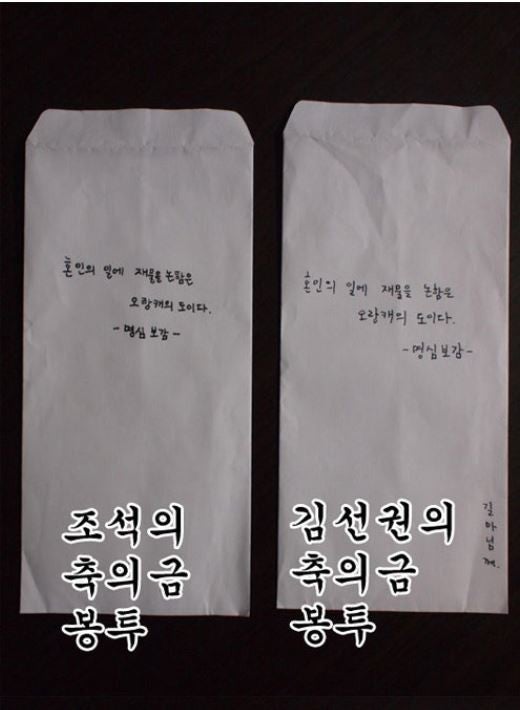 혼인의 일에 재물을 논함은
오랑캐의 도이다.
- 명심보감 -
조석의
축의금
봉투
혼인의 일에 재물을 논함은
오랑캐의 도이다.
- 명심보감 -
길마님께.
김선권의
축의금
봉투